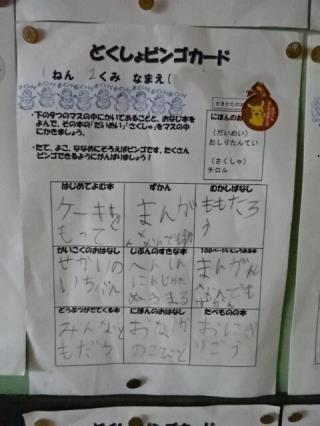 どくしょビンゴカード
1ねん 2くみ なまえ(
・下の9つのマスの中にかいてあることと、おなじ本を
よんで、その本の「だいめい」「さくしゃ」をマスの中
にかきましょう。
・たて、よこ、ななめにそろえばビンゴです。たくさん
ビンゴできるようにがんばりましょう!
かきかたのお
にほんのお
(だいめい)
おしりたんてい
(さくしゃ)
チロル
はじめてよむ本 ずかん むかしばなし
ケーキを
もって
まんが
ももたろ
う
がいこくのおはなし じぶんのすきな本 100ページいじょうある本
せかいの
いちばん
へんしん
にんじゃ
まる
まんが
なんでも
どうぶつがでてくる本 にほんのおはなし たべものの本
みんなと
もだち
おなか
のこびと
おにぎ
りごう